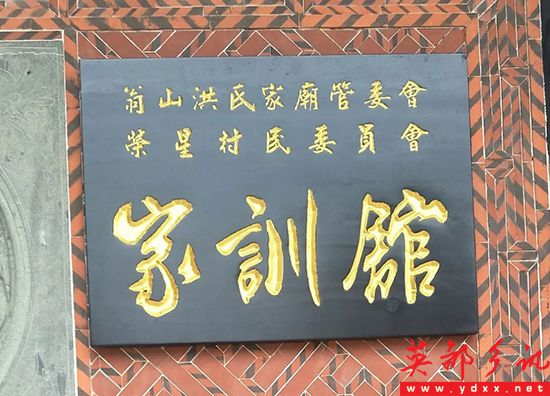 翁山洪氏家廟管委會
榮星村民委員會
家訓舘
英都今讯
www.ydxx.net